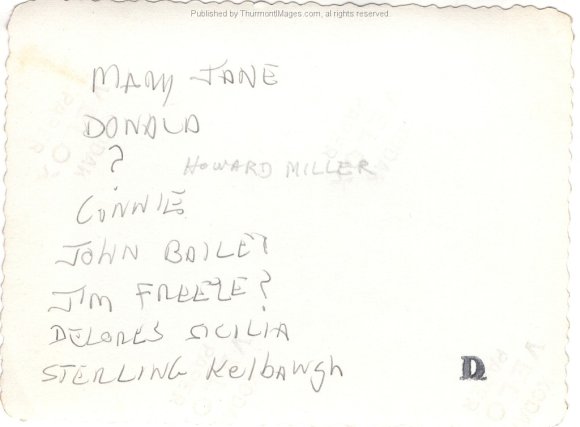 Published by ThurmontImages.com, all rights reserved
MARY JANE
DONALD
? HOWARD MILLER
CONNIE
JOHN BAILEY
JIM FREEZE?
DELORES SICILIA
STERLING Kelbaugh
D